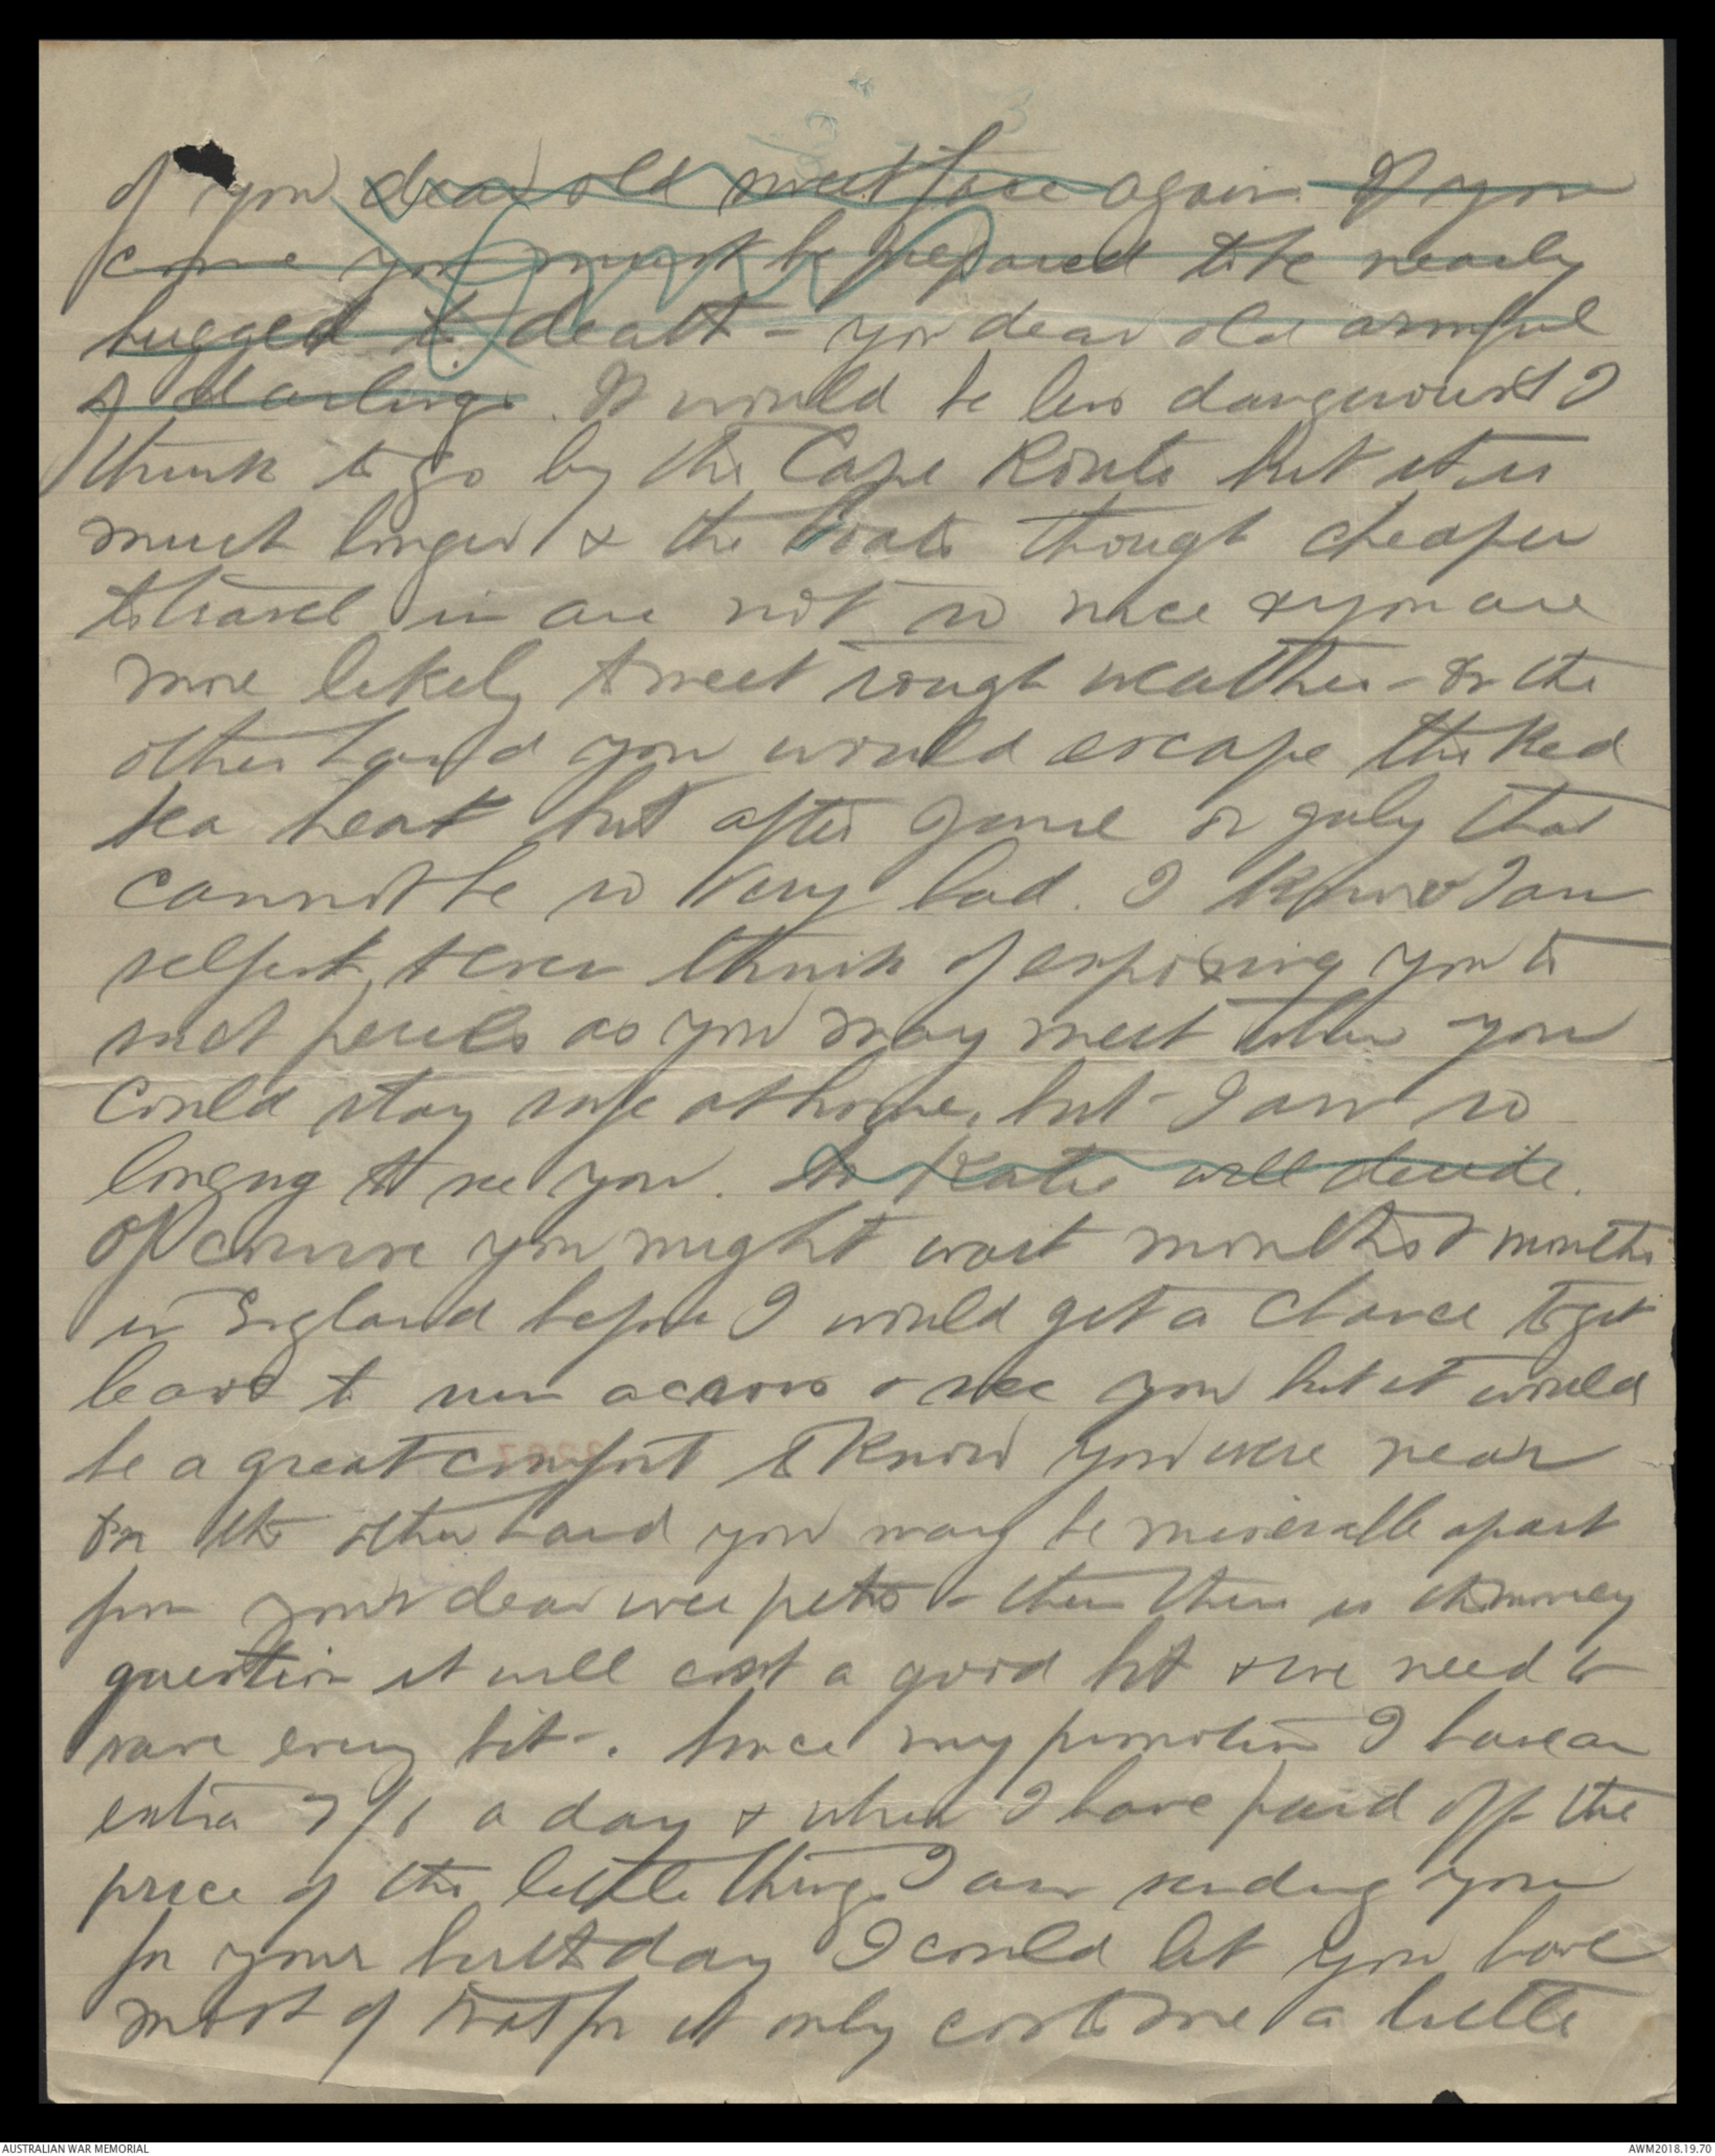 of your dear old sweet face again. If you
come you must be prepared to be nearly
hugged to death - you dear old armful
of darlings. It would be less dangerous I
think to go by the Cape Route but it is
much longer & the boats though cheaper
to travel in are not so nice & you are
more likely to meet rough weather - on the
other hand you would escape the Red
Sea heat but after June or July that
cannot be so very bad. I know I am
selfish to ever think of exposing you to
such perils as you may meet when you
could stay safe at home, but I am so
longing to see you. So Katie will decide.
Of course you might wait months & months
in England before I would get a chance to get
leave to run across & see you but it would
be a great comfort to know you were near
on the other hand you may be miserable apart
from your dear wee pets - then there is the money
question it will cost a good bit & we need to
save every bit -. Since my promotion I have an
extra 7/6 a day & when I have paid off the
price of the little things I am sending you
for your birthday I could let you have
most of that for it only costs me a little
AUSTRALIAN WAR MEMORIAL
AWM2018.19.70